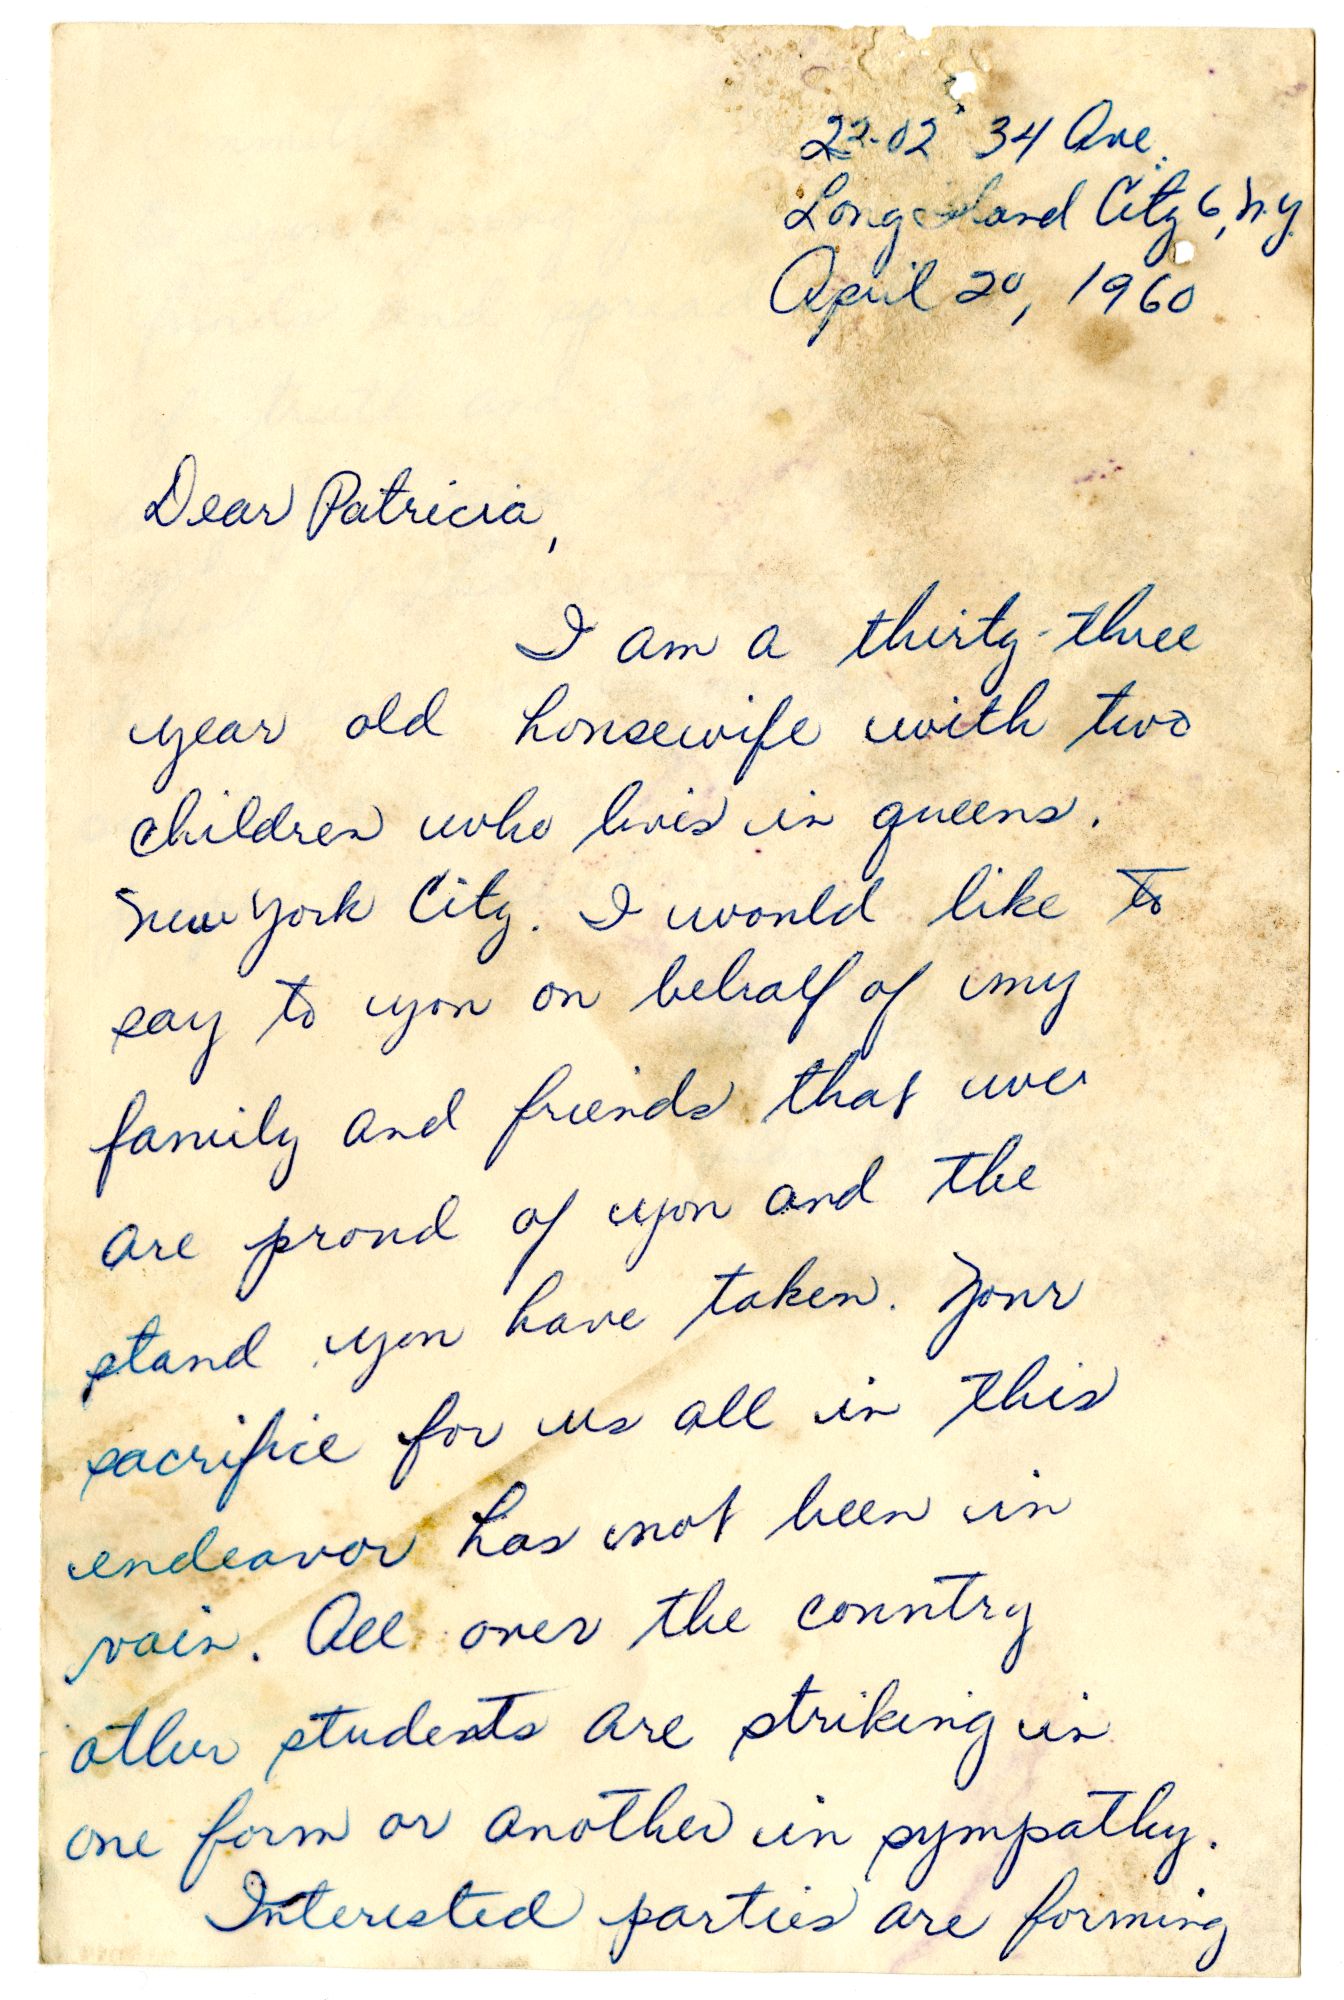 22-02 34 Ave.
Long Island City 6, N.Y.
April 20, 1960
Dear Patricia,
I am a thirty-three
year old housewife with two
children who lives in queens.
New York City. I would like to
say to you on behalf of my
family and friends that we
are proud of you and the
stand you have taken. Your
sacrifice for us all in this
endeavor has not been in
vain. All over the country
other students are striking in
one form or another in sympathy.
Interested parties are forming